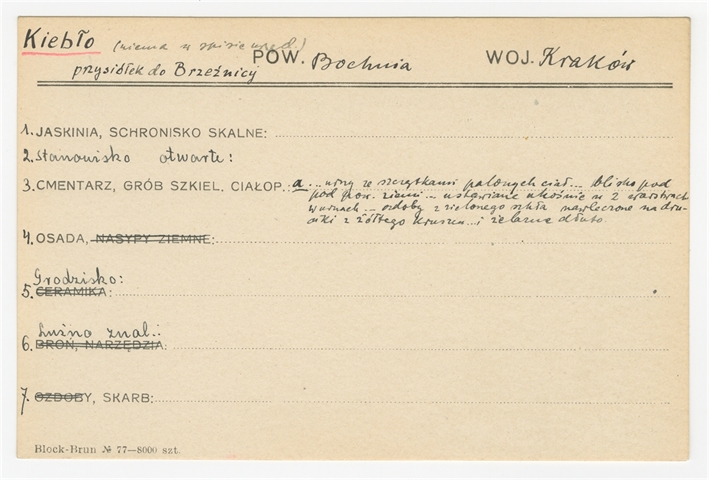 Kiebło (niema w spisie urzęd.)
przysiółek do Brzeźnicy POW. Bochnia WOJ. Kraków
1. JASKINIA, SCHRONISKO SKALNE:
2. Stanowisko otwarte:
3. CMENTARZ, GRÓB SZKIEL. CIAŁOP.: a ... urny ze szczątkami palonych ciał ... blisko pod
pod pow. ziemi ... ustawiane ukośnie w 2 warstwach
w urnach ... ozdoby z zielonego szkła nawleczone na dru-
ciki z żółtego kruszcu ... i żelazne dłuto.
4. OSADA, NASYPY ZIEMNE:
Grodzisko:
5. CERAMIKA:
Luźno znal.:
6. BROŃ, NARZĘDZIA:
7. OZDOBY, SKARB:
Block-Brun № 77—8000 szt.